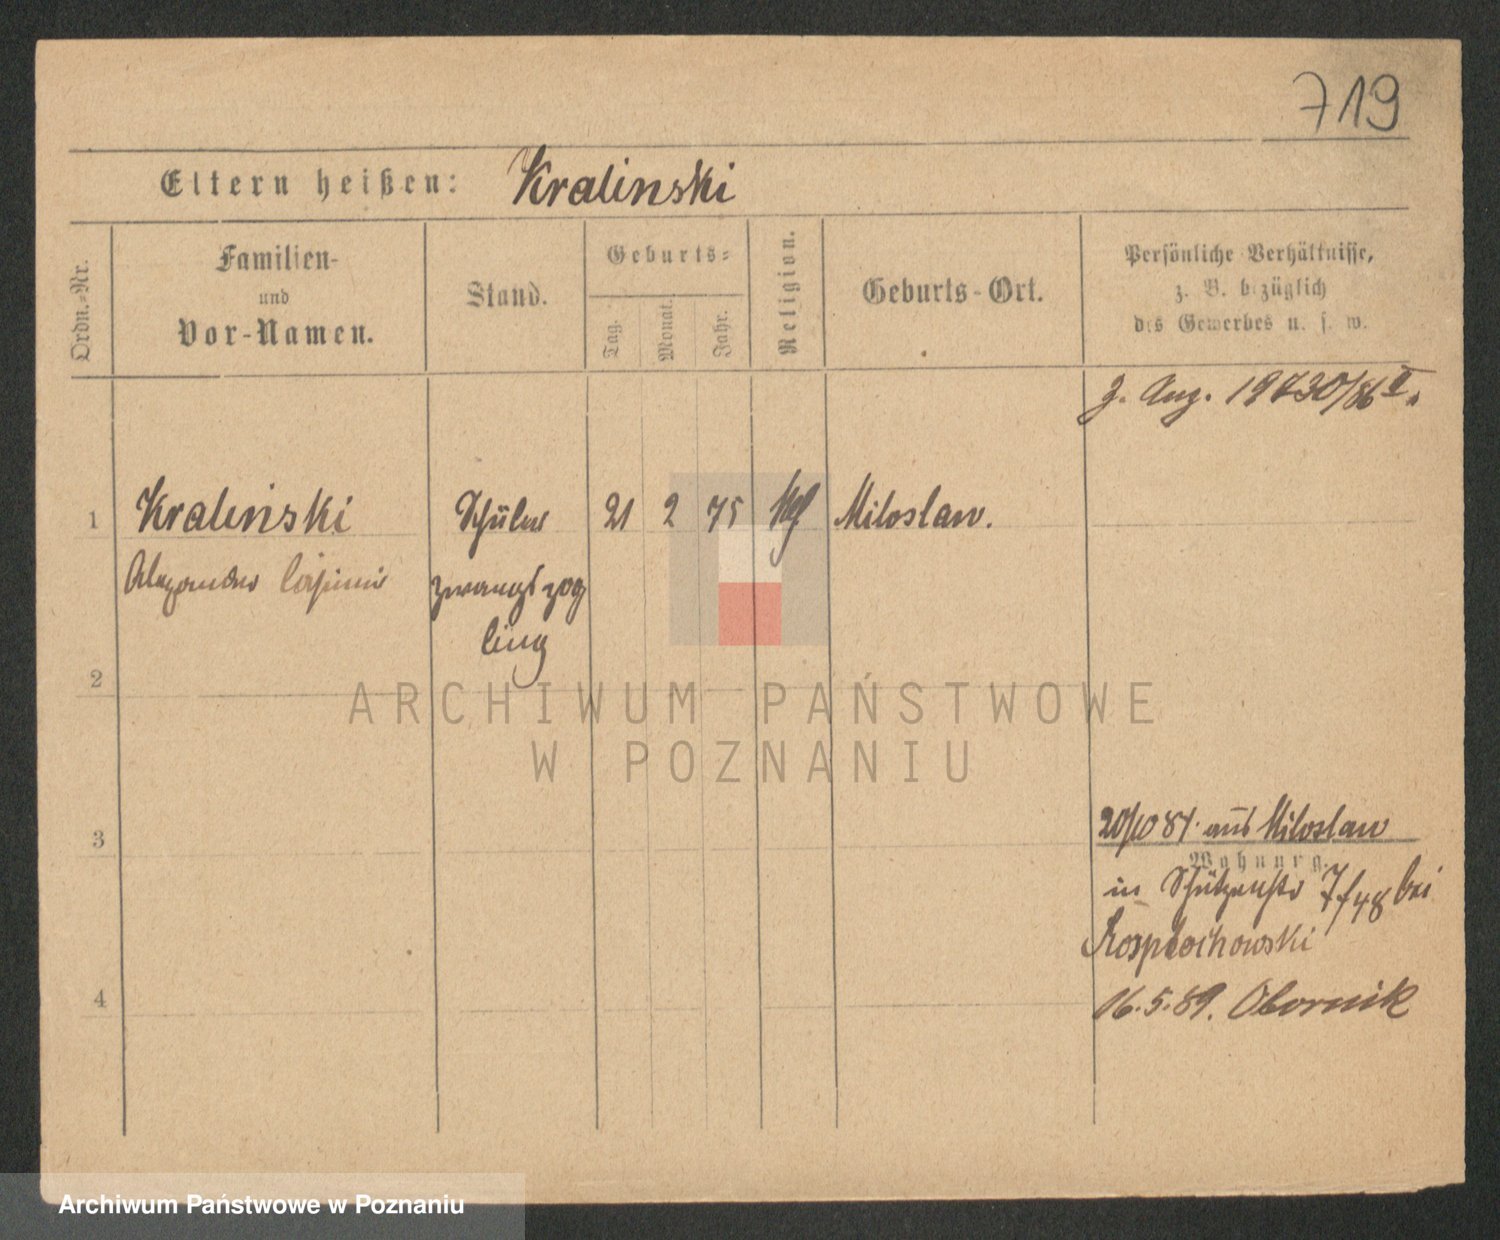 719
Eltern heißen: Kralinski
Ordn.-Nr.
Familien-
und
Vor-Namen.
Stand.
Geburts-
Tag.
Monat.
Jahr.
Religion.
Geburts-Ort.
Persönliche Verhältnisse,
z. B. bezüglich
des Gewerbes u. s. w.
z. Ang. 19730/86 II.
1 Kralinski Schüler 21 2 75 Miloslaw.
Alexander Casimir Zwangszög
ling
2
ARCHIWUM PAŃSTWOWE
W POZNANIU
3
20/10 87. aus Miloslaw
Wohnung.
in Schützenstr 7/48 bei
Rosplochowski
4
16.5.89. Obornik
Archiwum Państwowe w Poznaniu